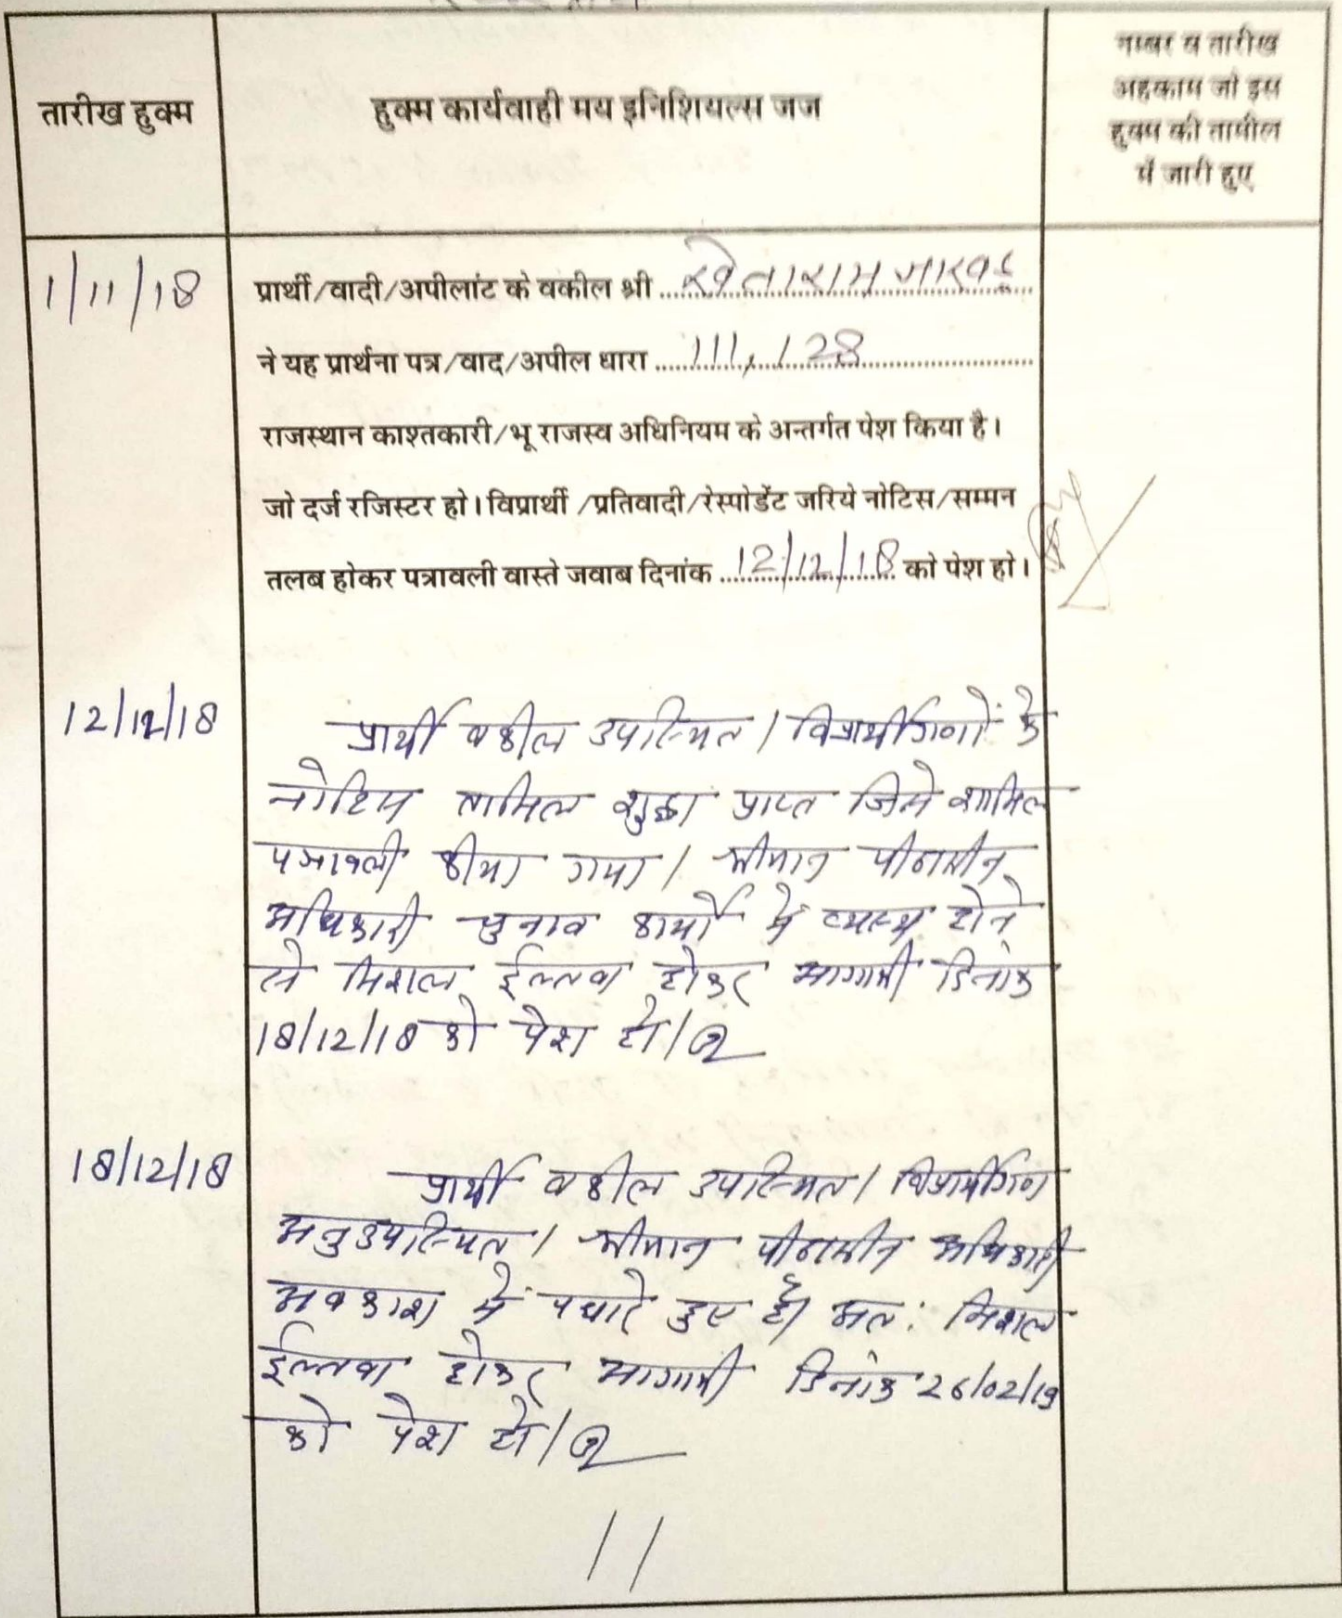 तारीख हुक्म
हुक्म कार्यवाही मय इनिशियल्स जज
नम्बर व तारीख
अहकाम जो इस
हुक्म की तामील
में जारी हुए
1/11/18
प्रार्थी/वादी/अपीलांट के वकील श्री खेताराम जाखड़
ने यह प्रार्थना पत्र/वाद/अपील धारा 111, 128
राजस्थान काश्तकारी/भू राजस्व अधिनियम के अन्तर्गत पेश किया है।
जो दर्ज रजिस्टर हो। विप्रार्थी /प्रतिवादी/रेस्पोडेंट जरिये नोटिस/सम्मन
तलब होकर पत्रावली वास्ते जवाब दिनांक 12/12/18 को पेश हो।
12/12/18
प्रार्थी वकील उपस्थित। विप्रार्थीगणों के
नोटिस तामिल शुदा प्राप्त जिसे शामिल
पत्रावली कीया गया। श्रीमान पीठासीन
अधिकारी चुनाव कार्यो में व्यस्थ होने
से मिशल ईल्तवा होकर आगामी दिनांक
18/12/18 को पेश हो।
18/12/18
प्रार्थी वकील उपस्थित। विप्रार्थीगण
अनुउपस्थित। श्रीमान पीठासीन अधिकारी
अवकाश में पधारे हुए है। अतः मिशल
ईल्तवा होकर आगामी दिनांक 26/02/19
को पेश हो।